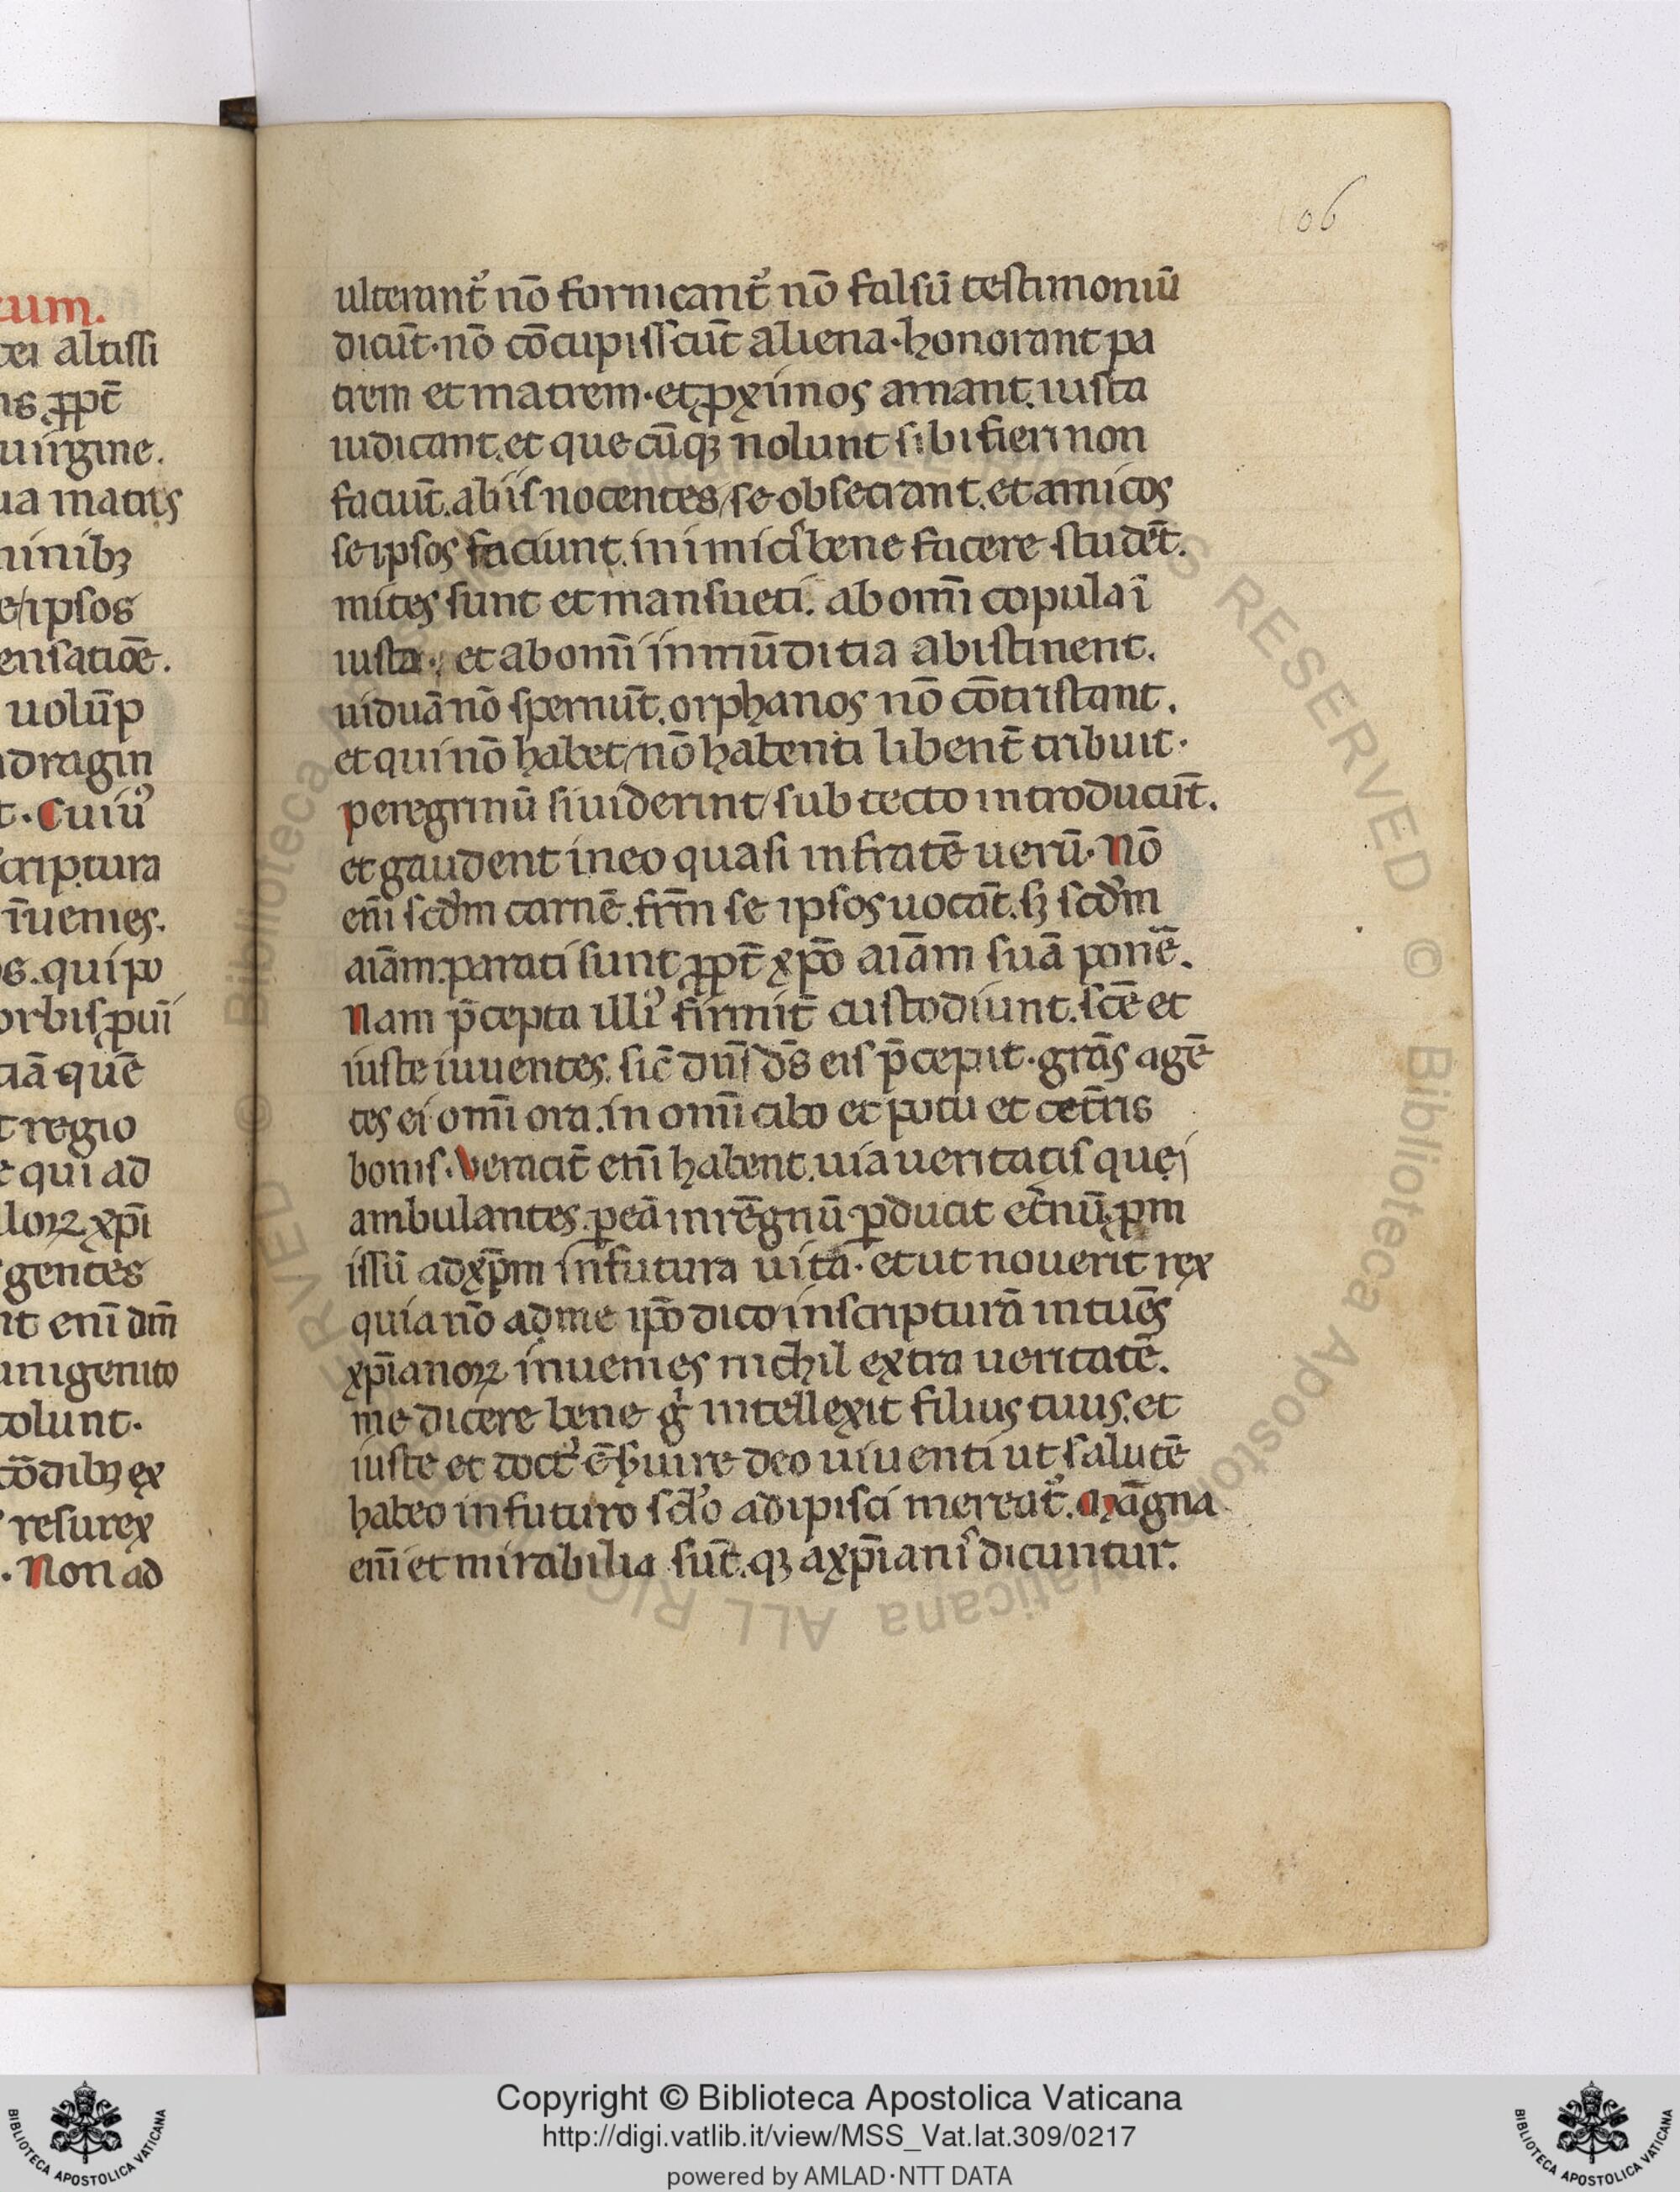 tum.
tei altissi
ns ꝓpt̄
uirgine.
ua matris
minibꝫ
e/ipsos
ensatiōe.
uolūp
adragin
t. Cuiuꝰ
scriptura
īuenies.
os. qui po
orbis ꝓuī
tiā quē
t regio
e qui ad
loꝝ xp̄i
gentes
nt enī dm̄
unigenito
colunt.
cōdibꝫ ex
resurex
. Non ad
106
ulterant᷑ nō fornicant᷑ nō falsū testimoniū
dicūt. nō cōcupisscūt aliena. honorant pa
trem et matrem. et ꝓximos amant. iusta
iudicant. et que cūqꝫ nolunt sibi fieri non
faciūt. ab iis nocentes/se obsecrant. et amicos
se ipsos faciunt. inimicis bene facere studēt.
mites sunt et mansueti. ab omī copula ī
iusta. et ab omī inmūditia abistinent.
uiduā nō spernūt. orphanos nō cōtristant.
et qui nō habet/nō habenti libent̄ tribuit.
peregrinū si uiderint/sub tecto introducūt.
et gaudent in eo quasi in fratē uerū. Nō
enī scd̄m carnē. frm̄ se ipsos uocāt. sꝫ scd̄m
aiām. parati sunt ꝓpt̄ xp̄o aiām suā ponē.
Nam p̄cepta illiꝰ firmit̄ custodiunt. scē et
iuste iuuentes. sic̄ dn̄s ds̄ eis p̄cepit. grās agē
tes ei omī ora. in omī cibo et potu et cet̄ris
bonis. Veracit̄ enī habent. uia ueritatis quei
ambulantes. ꝑ eā in rēgnū ꝑducit et̄nū. ꝓm
issū ad xp̄m in futura uita. et ut nouerit rex
quia nō ad me ip̄o dico in scripturā intuēs
xp̄ianoꝝ inuenies nichil extra ueritatē.
me dicere bene gͥ intellexit filius tuus. et
iuste et doctꝰ ē ẜuire deo uiuenti ut salutē
habeo in futuro sclo adipisci mereat᷑. Māgna
enī et mirabilia sūt. qꝫ a xp̄ianis dicuntur.
Copyright © Biblioteca Apostolica Vaticana
http://digi.vatlib.it/view/MSS_Vat.lat.309/0217
powered by AMLAD·NTT DATA
BIBLIOTECA APOSTOLICA VATICANA
BIBLIOTECA APOSTOLICA VATICANA